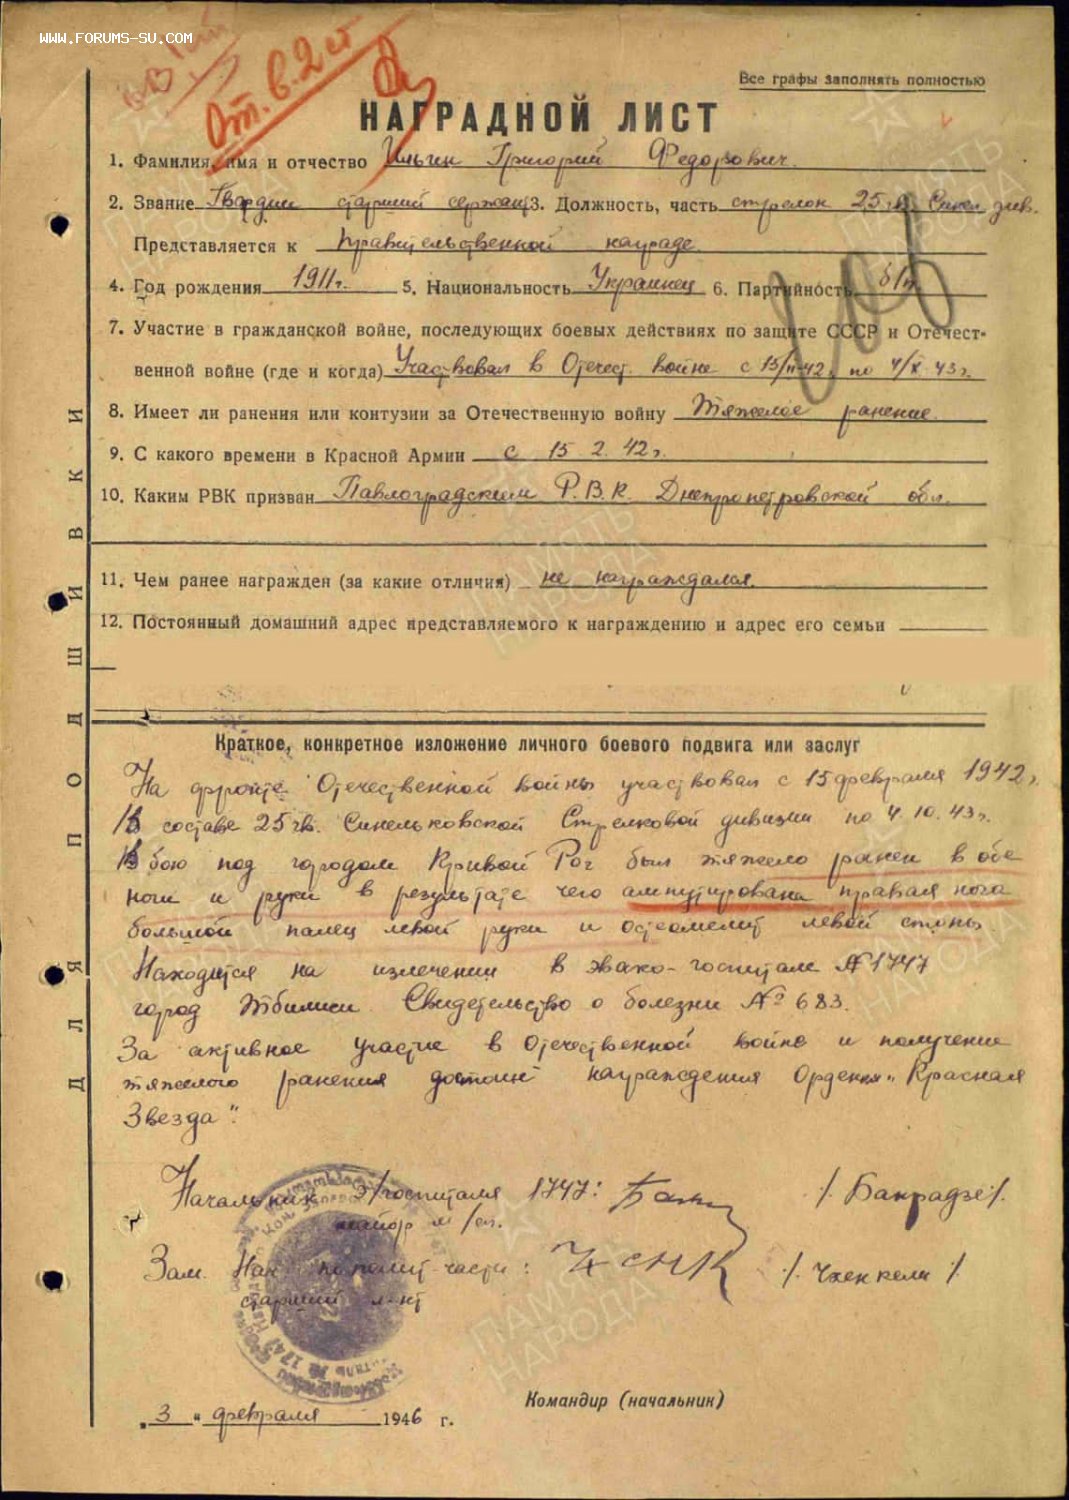 WWW.FORUMS-SU.COM
От. в. 2 ст
Все графы заполнять полностью
НАГРАДНОЙ ЛИСТ
1. Фамилия, имя и отчество Ильин Григорий Федорович.
2. Звание Гвардии старший сержант 3. Должность, часть стрелок 25 гв. Синел див.
Представляется к правительственной награде
4. Год рождения 1911 г. 5. Национальность Украинец 6. Партийность б/п.
7. Участие в гражданской войне, последующих боевых действиях по защите СССР и Отечест-
венной войне (где и когда) Участвовал в Отечест. войне с 15/II-42 г. по 4/X-43 г.
8. Имеет ли ранения или контузии за Отечественную войну Тяжелое ранение.
9. С какого времени в Красной Армии с 15 2. 42 г.
10. Каким РВК призван Павлоградским Р.В.К. Днепропетровской обл.
11. Чем ранее награжден (за какие отличия) не награждался.
12. Постоянный домашний адрес представляемого к награждению и адрес его семьи
ДЛЯ ПОДШИВКИ
Краткое, конкретное изложение личного боевого подвига или заслуг
На фронте Отечественной войны участвовал с 15 февраля 1942 г.
В составе 25 гв. Синельковской Стрелковой дивизии по 4. 10. 43 г.
В бою под городом Кривой Рог был тяжело ранен в обе
ноги и руки в результате чего ампутирована правая нога
большой палец левой руки и остеомелит левой стопы.
Находится на излечении в эвако-госпитале № 1747
город Тбилиси. Свидетельство о болезни № 683.
За активное участие в Отечественной войне и получение
тяжелого ранения достоин награждения Ордена „Красная
Звезда".
Начальник Э/госпиталя 1747: /Бакрадзе/.
майор м/сл.
Зам. Нач по полит-части: /Чхенкели/
старший л-нт
Командир (начальник)
„3" февраля 1946 г.
ПАМЯТЬ НАРОДА